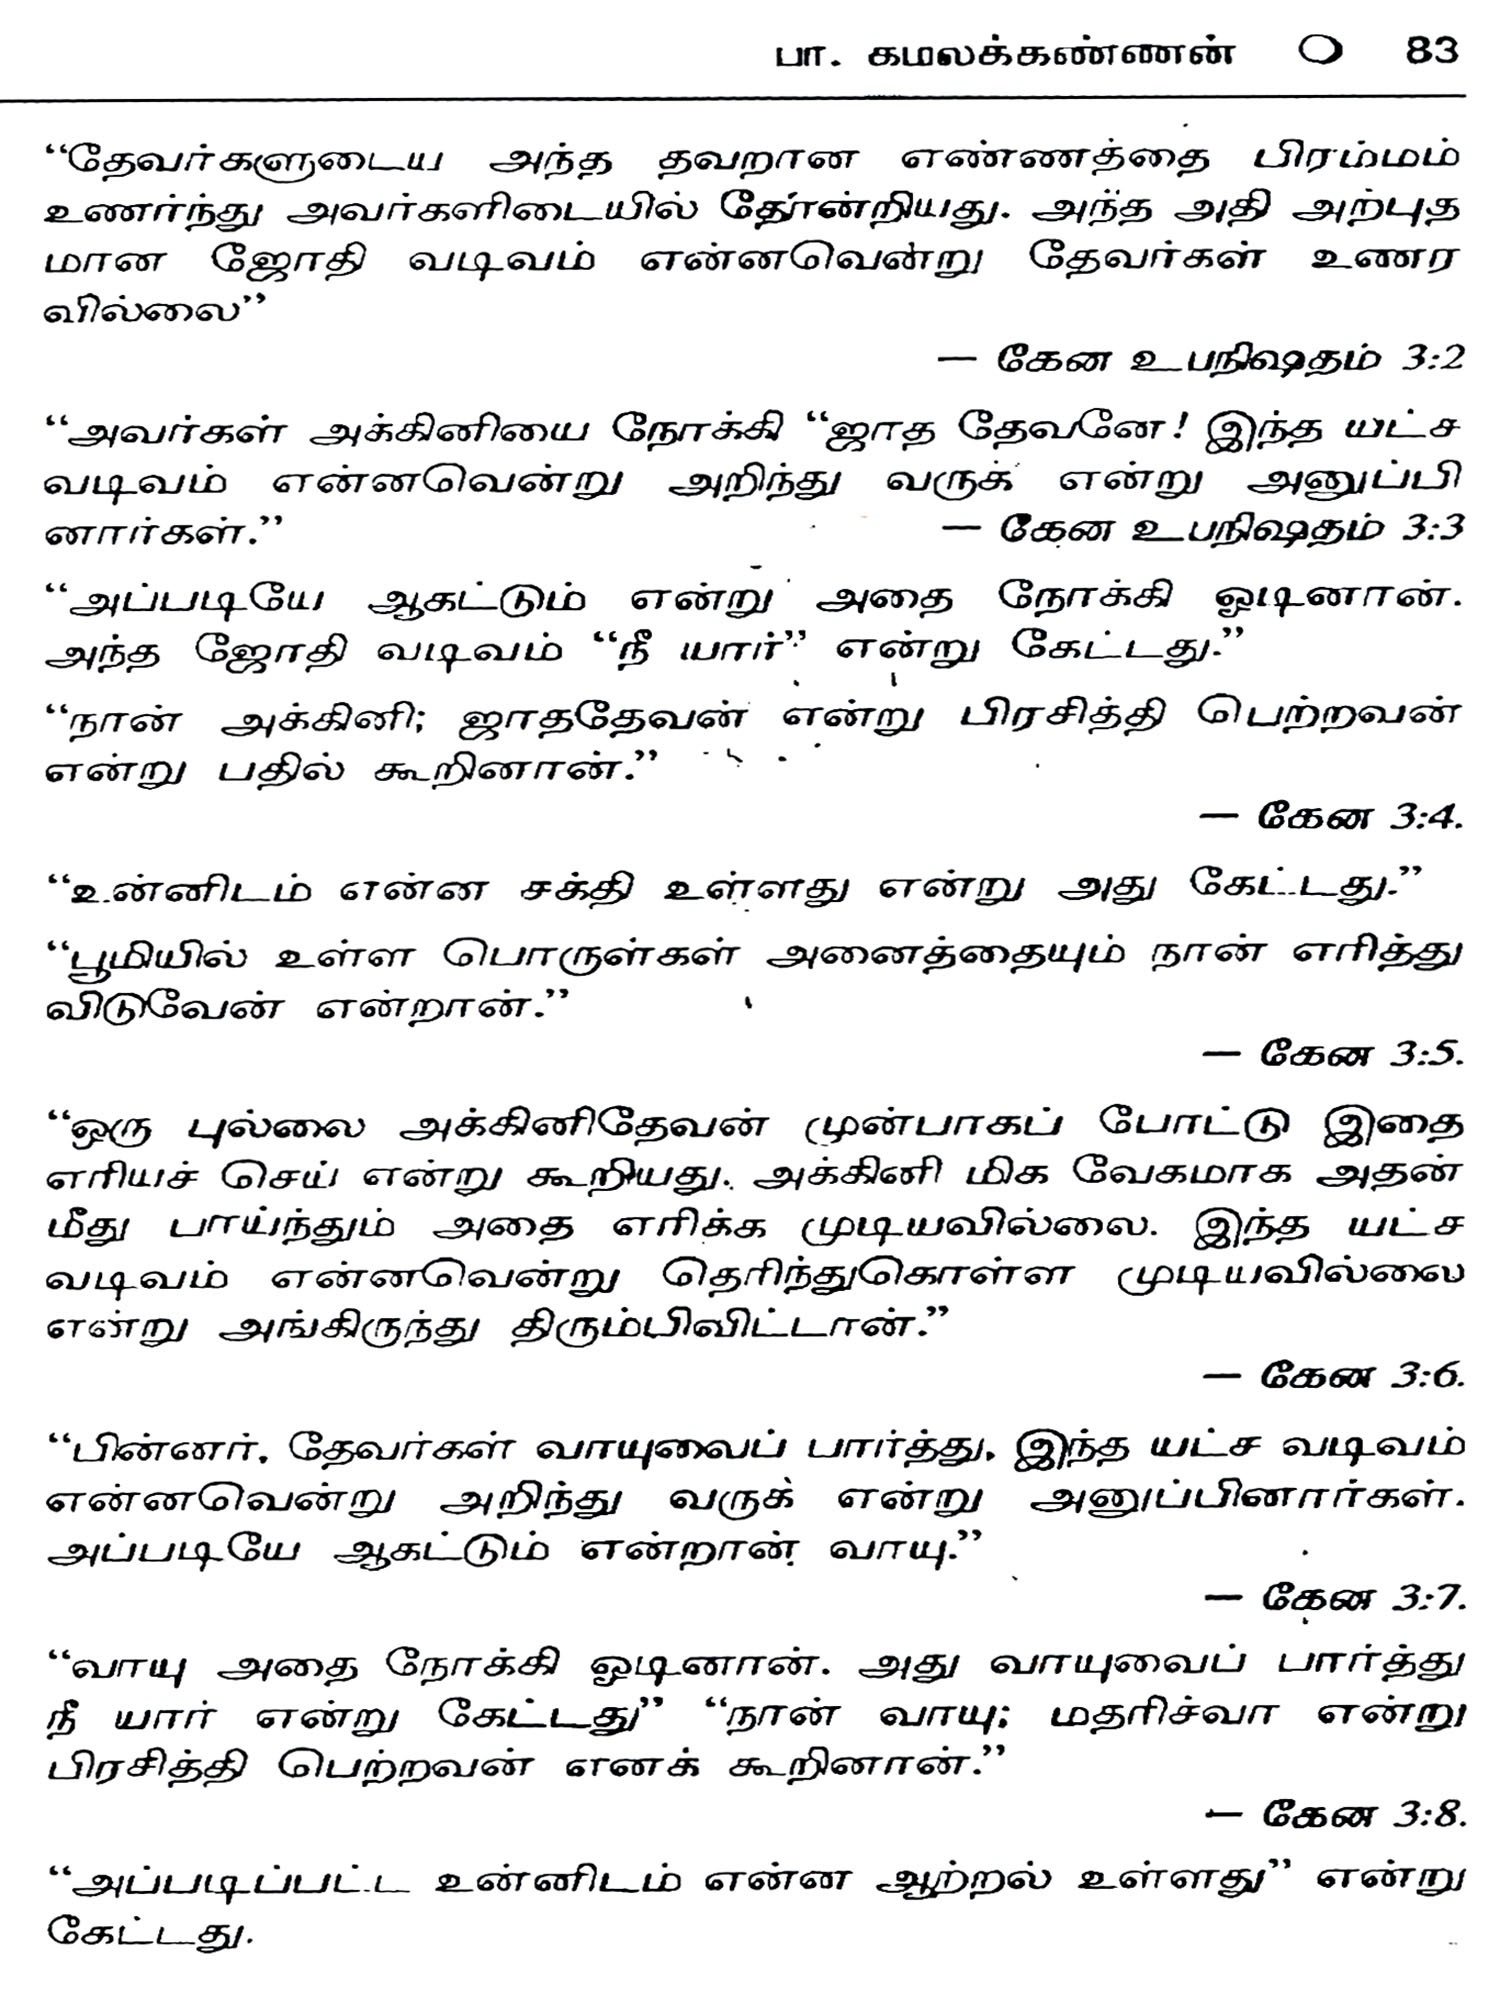 பா. கமலக்கண்ணன் ○ 83
“தேவர்களுடைய அந்த தவறான எண்ணத்தை பிரம்மம்
உணர்ந்து அவர்களிடையில் தோன்றியது. அந்த அதி அற்புத
மான ஜோதி வடிவம் என்னவென்று தேவர்கள் உணர
வில்லை”
— கேன உபநிஷதம் 3:2
“அவர்கள் அக்கினியை நோக்கி “ஜாத தேவனே! இந்த யட்ச
வடிவம் என்னவென்று அறிந்து வருக என்று அனுப்பி
னார்கள்.” — கேன உபநிஷதம் 3:3
“அப்படியே ஆகட்டும் என்று அதை நோக்கி ஓடினான்.
அந்த ஜோதி வடிவம் “நீ யார்” என்று கேட்டது.”
“நான் அக்கினி; ஜாததேவன் என்று பிரசித்தி பெற்றவன்
என்று பதில் கூறினான்.”
— கேன 3:4.
“உன்னிடம் என்ன சக்தி உள்ளது என்று அது கேட்டது.”
“பூமியில் உள்ள பொருள்கள் அனைத்தையும் நான் எரித்து
விடுவேன் என்றான்.”
— கேன 3:5.
“ஒரு புல்லை அக்கினிதேவன் முன்பாகப் போட்டு இதை
எரியச் செய் என்று கூறியது. அக்கினி மிக வேகமாக அதன்
மீது பாய்ந்தும் அதை எரிக்க முடியவில்லை. இந்த யட்ச
வடிவம் என்னவென்று தெரிந்துகொள்ள முடியவில்லை
என்று அங்கிருந்து திரும்பிவிட்டான்.”
— கேன 3:6.
“பின்னர், தேவர்கள் வாயுவைப் பார்த்து, இந்த யட்ச வடிவம்
என்னவென்று அறிந்து வருக என்று அனுப்பினார்கள்.
அப்படியே ஆகட்டும் என்றான் வாயு.”
— கேன 3:7.
“வாயு அதை நோக்கி ஓடினான். அது வாயுவைப் பார்த்து
நீ யார் என்று கேட்டது” “நான் வாயு; மதரிச்வா என்று
பிரசித்தி பெற்றவன் எனக் கூறினான்.”
— கேன 3:8.
“அப்படிப்பட்ட உன்னிடம் என்ன ஆற்றல் உள்ளது” என்று
கேட்டது.